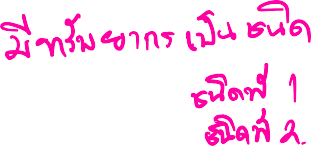 มีทรัพยากร เป็น ชนิด
ชนิดที่ 1
ชนิดที่ 2.